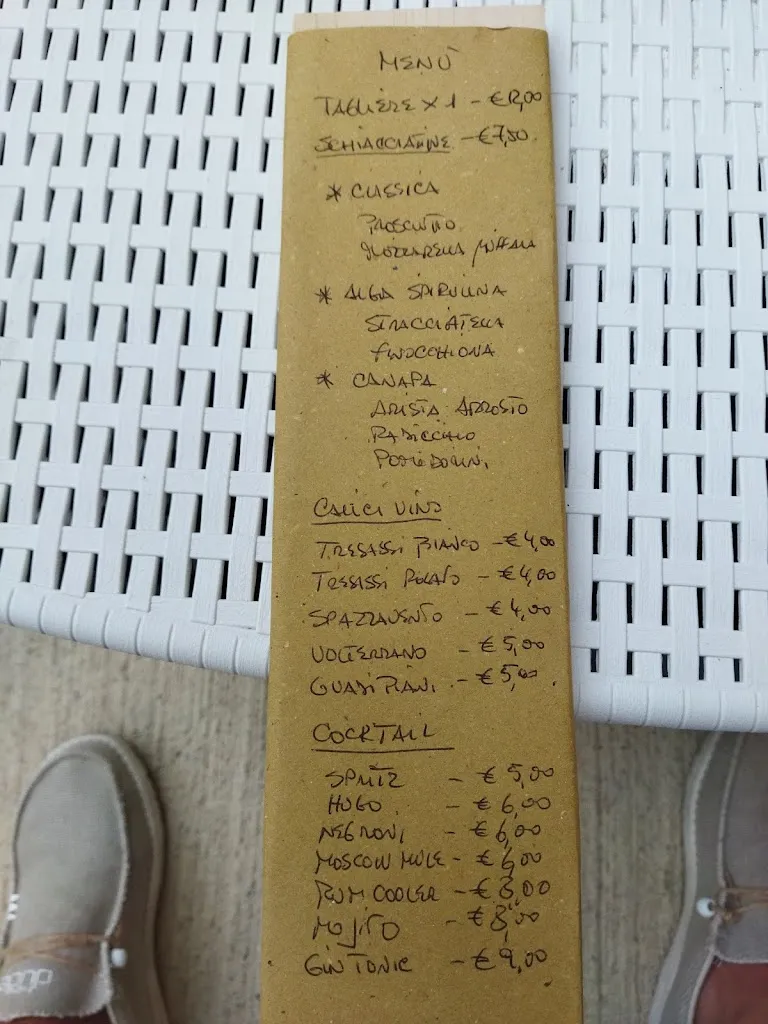 MENÙ
TAGLIERE X 1 - €12,00
SCHIACCIATINE - €7,50
* CLASSICA
PROSCIUTTO
MOZZARELLA BUFFALA
* ALGA SPIRULINA
STRACCIATELLA
FINOCCHIONA
* CANAPA
ARISTA ARROSTO
RADICCHIO
POMODORINI
CALICI VINO
TRESASSI BIANCO - €4,00
TRESASSI ROSATO - €4,00
SPAZZAVENTO - €4,00
VOLTERRANO - €5,00
GUADI PIANI - €5,00
COCKTAIL
SPRITZ - €5,00
HUGO - €6,00
NEGRONI - €6,00
MOSCOW MULE - €6,00
RUM COOLER - €8,00
MOJITO - €8,00
GIN TONIC - €9,00